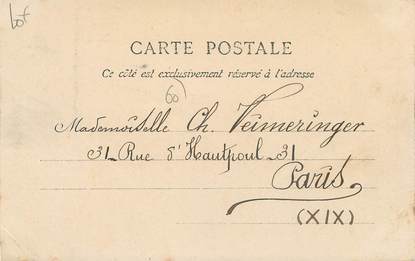 lot
CARTE POSTALE
Ce côté est exclusivement réservé à l'adresse
60
Mademoiselle Ch. Veimeringer
31 - Rue d'Hautpoul - 31
Paris
(XIX)